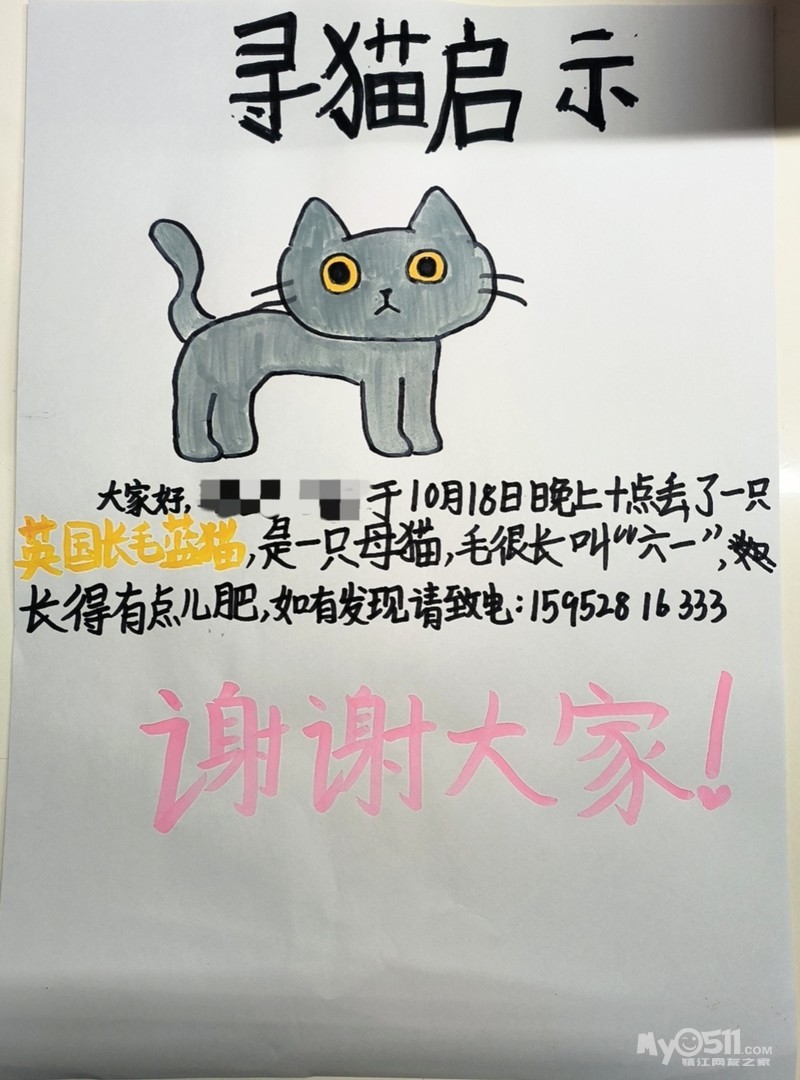 寻猫启示
大家好, 于10月18日晚上十点丢了一只
英国长毛蓝猫,是一只母猫,毛很长叫“六一”,
长得有点儿肥,如有发现请致电:15952816333
谢谢大家!
My0511.COM
镇江网友之家